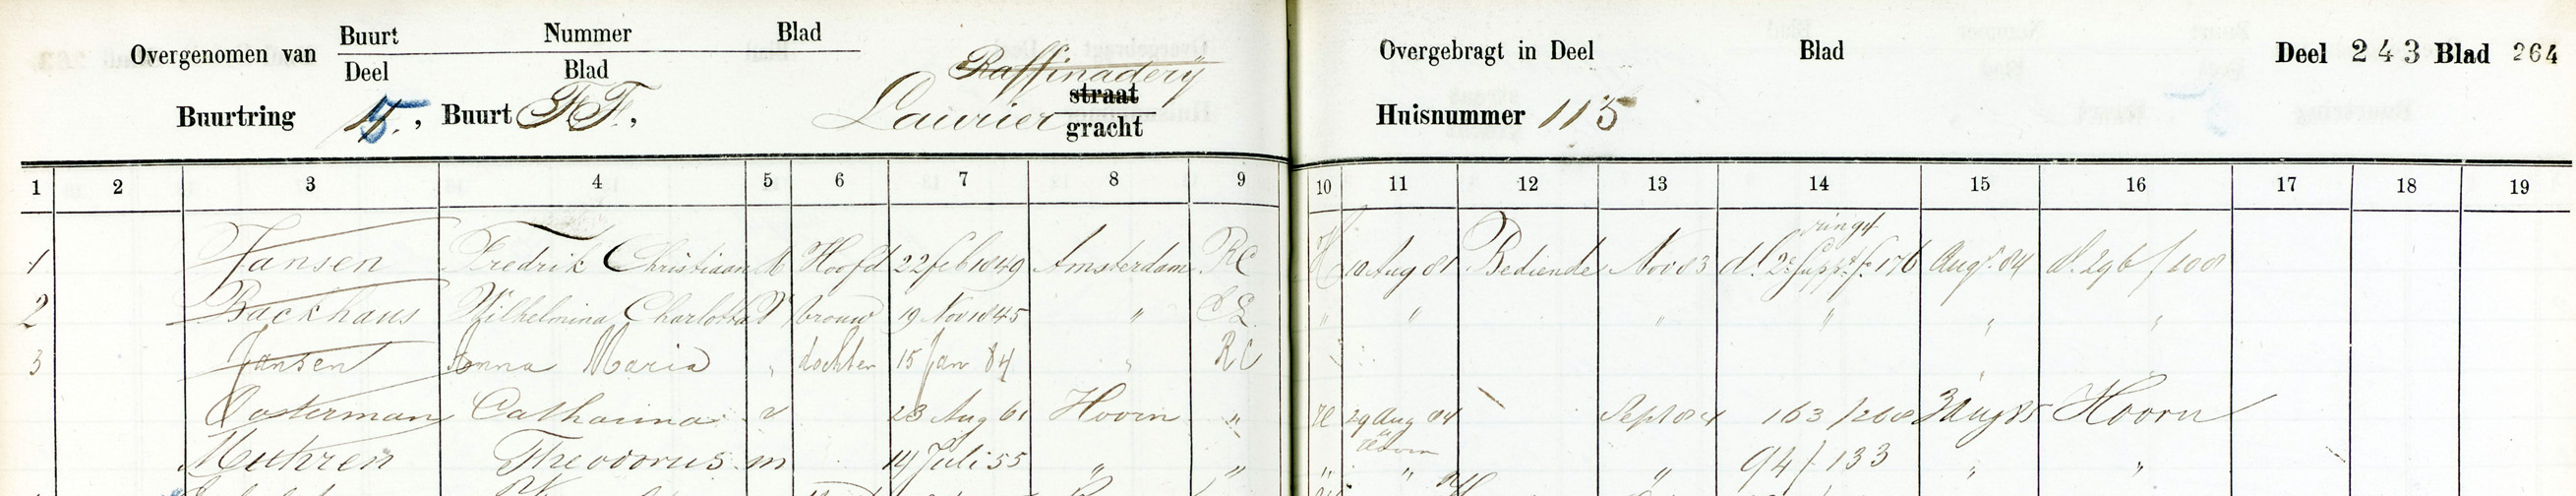 Overgenomen van Buurt Nummer Blad
Deel Blad
Raffinadery
Buurtring 5, Buurt FF, Laurier straat gracht
Overgebragt in Deel Blad Deel 243 Blad 264
Huisnummer 113
1 2 3 4 5 6 7 8 9 10 11 12 13 14 15 16 17 18 19
1 Jansen Fredrik Christiaan M Hoofd 22 feb 1849 Amsterdam RC H 10 Aug 81 Bediende Nov 83 dl 2e Suppt f 176 Aug 84 dl 296 / 100
2 Backhaus Wilhelmina Charlotta V vrouw 19 Nov 1845 " EL " " " " " "
3 Jansen Anna Maria " dochter 15 Jan 84 " RC
Oosterman Catharina v 23 Aug 61 Hoorn " 29 Aug 84 Sept 84 163 / 268 3 Aug 85 Hoorn
Hoorn
Muhren Theodorus m 14 Juli 55 " " " " " 94 / 133 " "